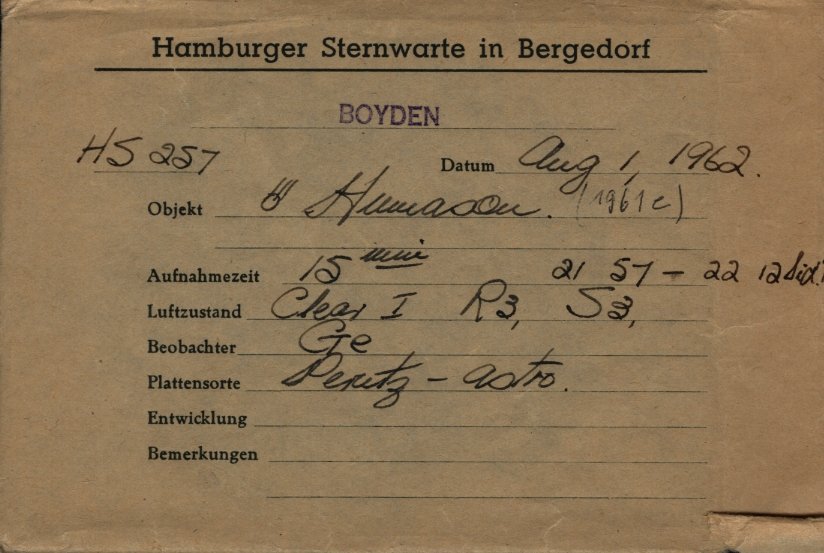 Hamburger Sternwarte in Bergedorf
BOYDEN
HS 257 Datum Aug 1, 1962.
Objekt Humason. (1961e)
Aufnahmezeit 15 min 21 57 – 22 12 Sid.
Luftzustand Clear I R3, S3,
Beobachter Ge
Plattensorte Perutz – astro.
Entwicklung
Bemerkungen